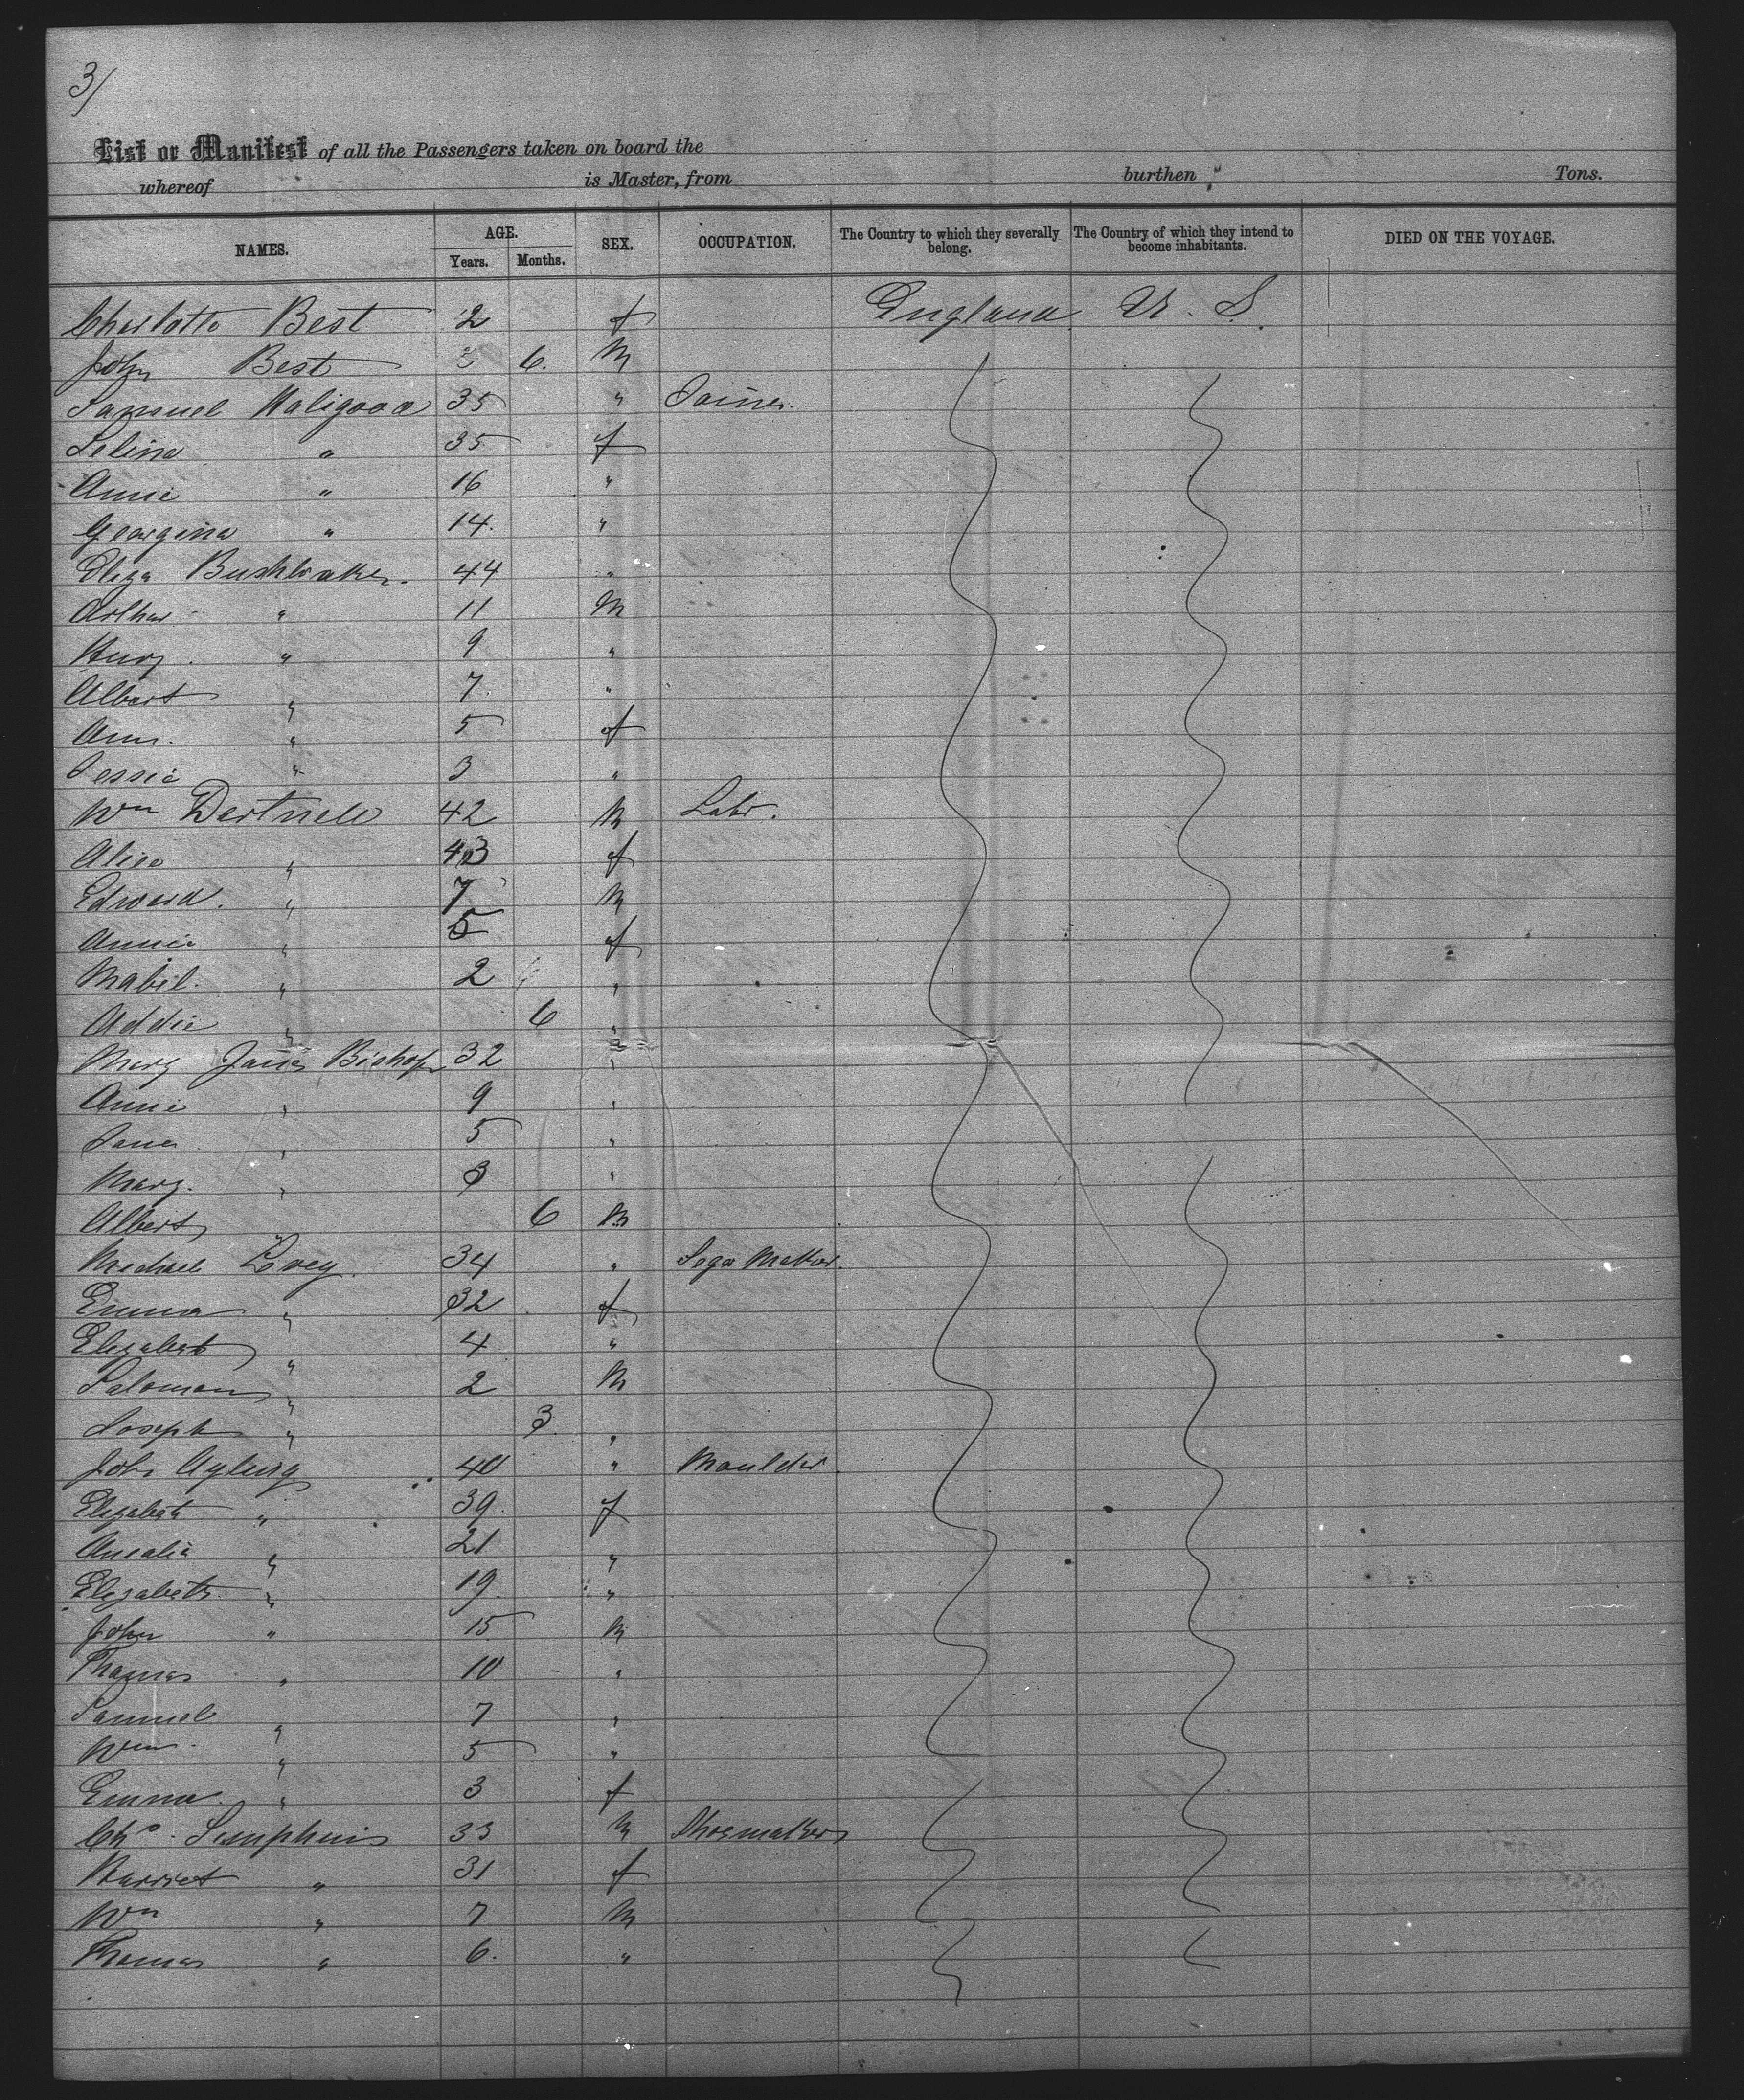 3/
List or Manifest of all the Passengers taken on board the
whereof is Master, from burthen Tons.
NAMES. AGE. Years. Months. SEX. OCCUPATION. The Country to which they severally belong. The Country of which they intend to become inhabitants. DIED ON THE VOYAGE.
Charlotte Best 2 f England U. S.
John Best 6. M
Samuel Haligood 35 " Joiner.
Selina " 35 f
Annie " 16 "
Georgina " 14. "
Eliza 44 "
Arthur " 11 M
Hury. " 9 "
Albert " 7. "
Ann. " 5 f
Jessie " 3 "
Wm Dertnell 42 M Labr.
Alice " 43 f
Edward. " 7 M
Annie " 5 f
Mabil. " 2 "
Addie " 6 "
Mary Jane Bishop 32 "
Annie " 9 "
Jane " 5 "
Mary. " 3 "
Albert " 6 M
Michael 34 "
Emma " 32 f
Elizabeth " 4 "
Saloman " 2 M
Joseph " 3. "
John Ayling 40 " Moulder.
Elizabeth " 39. f
Amalia " 21 "
Elizabeth " 19. "
John " 15 M
Thomas " 10 "
Samuel " 7 "
Wm. " 5 "
Emma. " 3 f
Chs. 33 M Shoemaker
Harriet " 31 f
Wm " 7 M
Thomas " 6. "